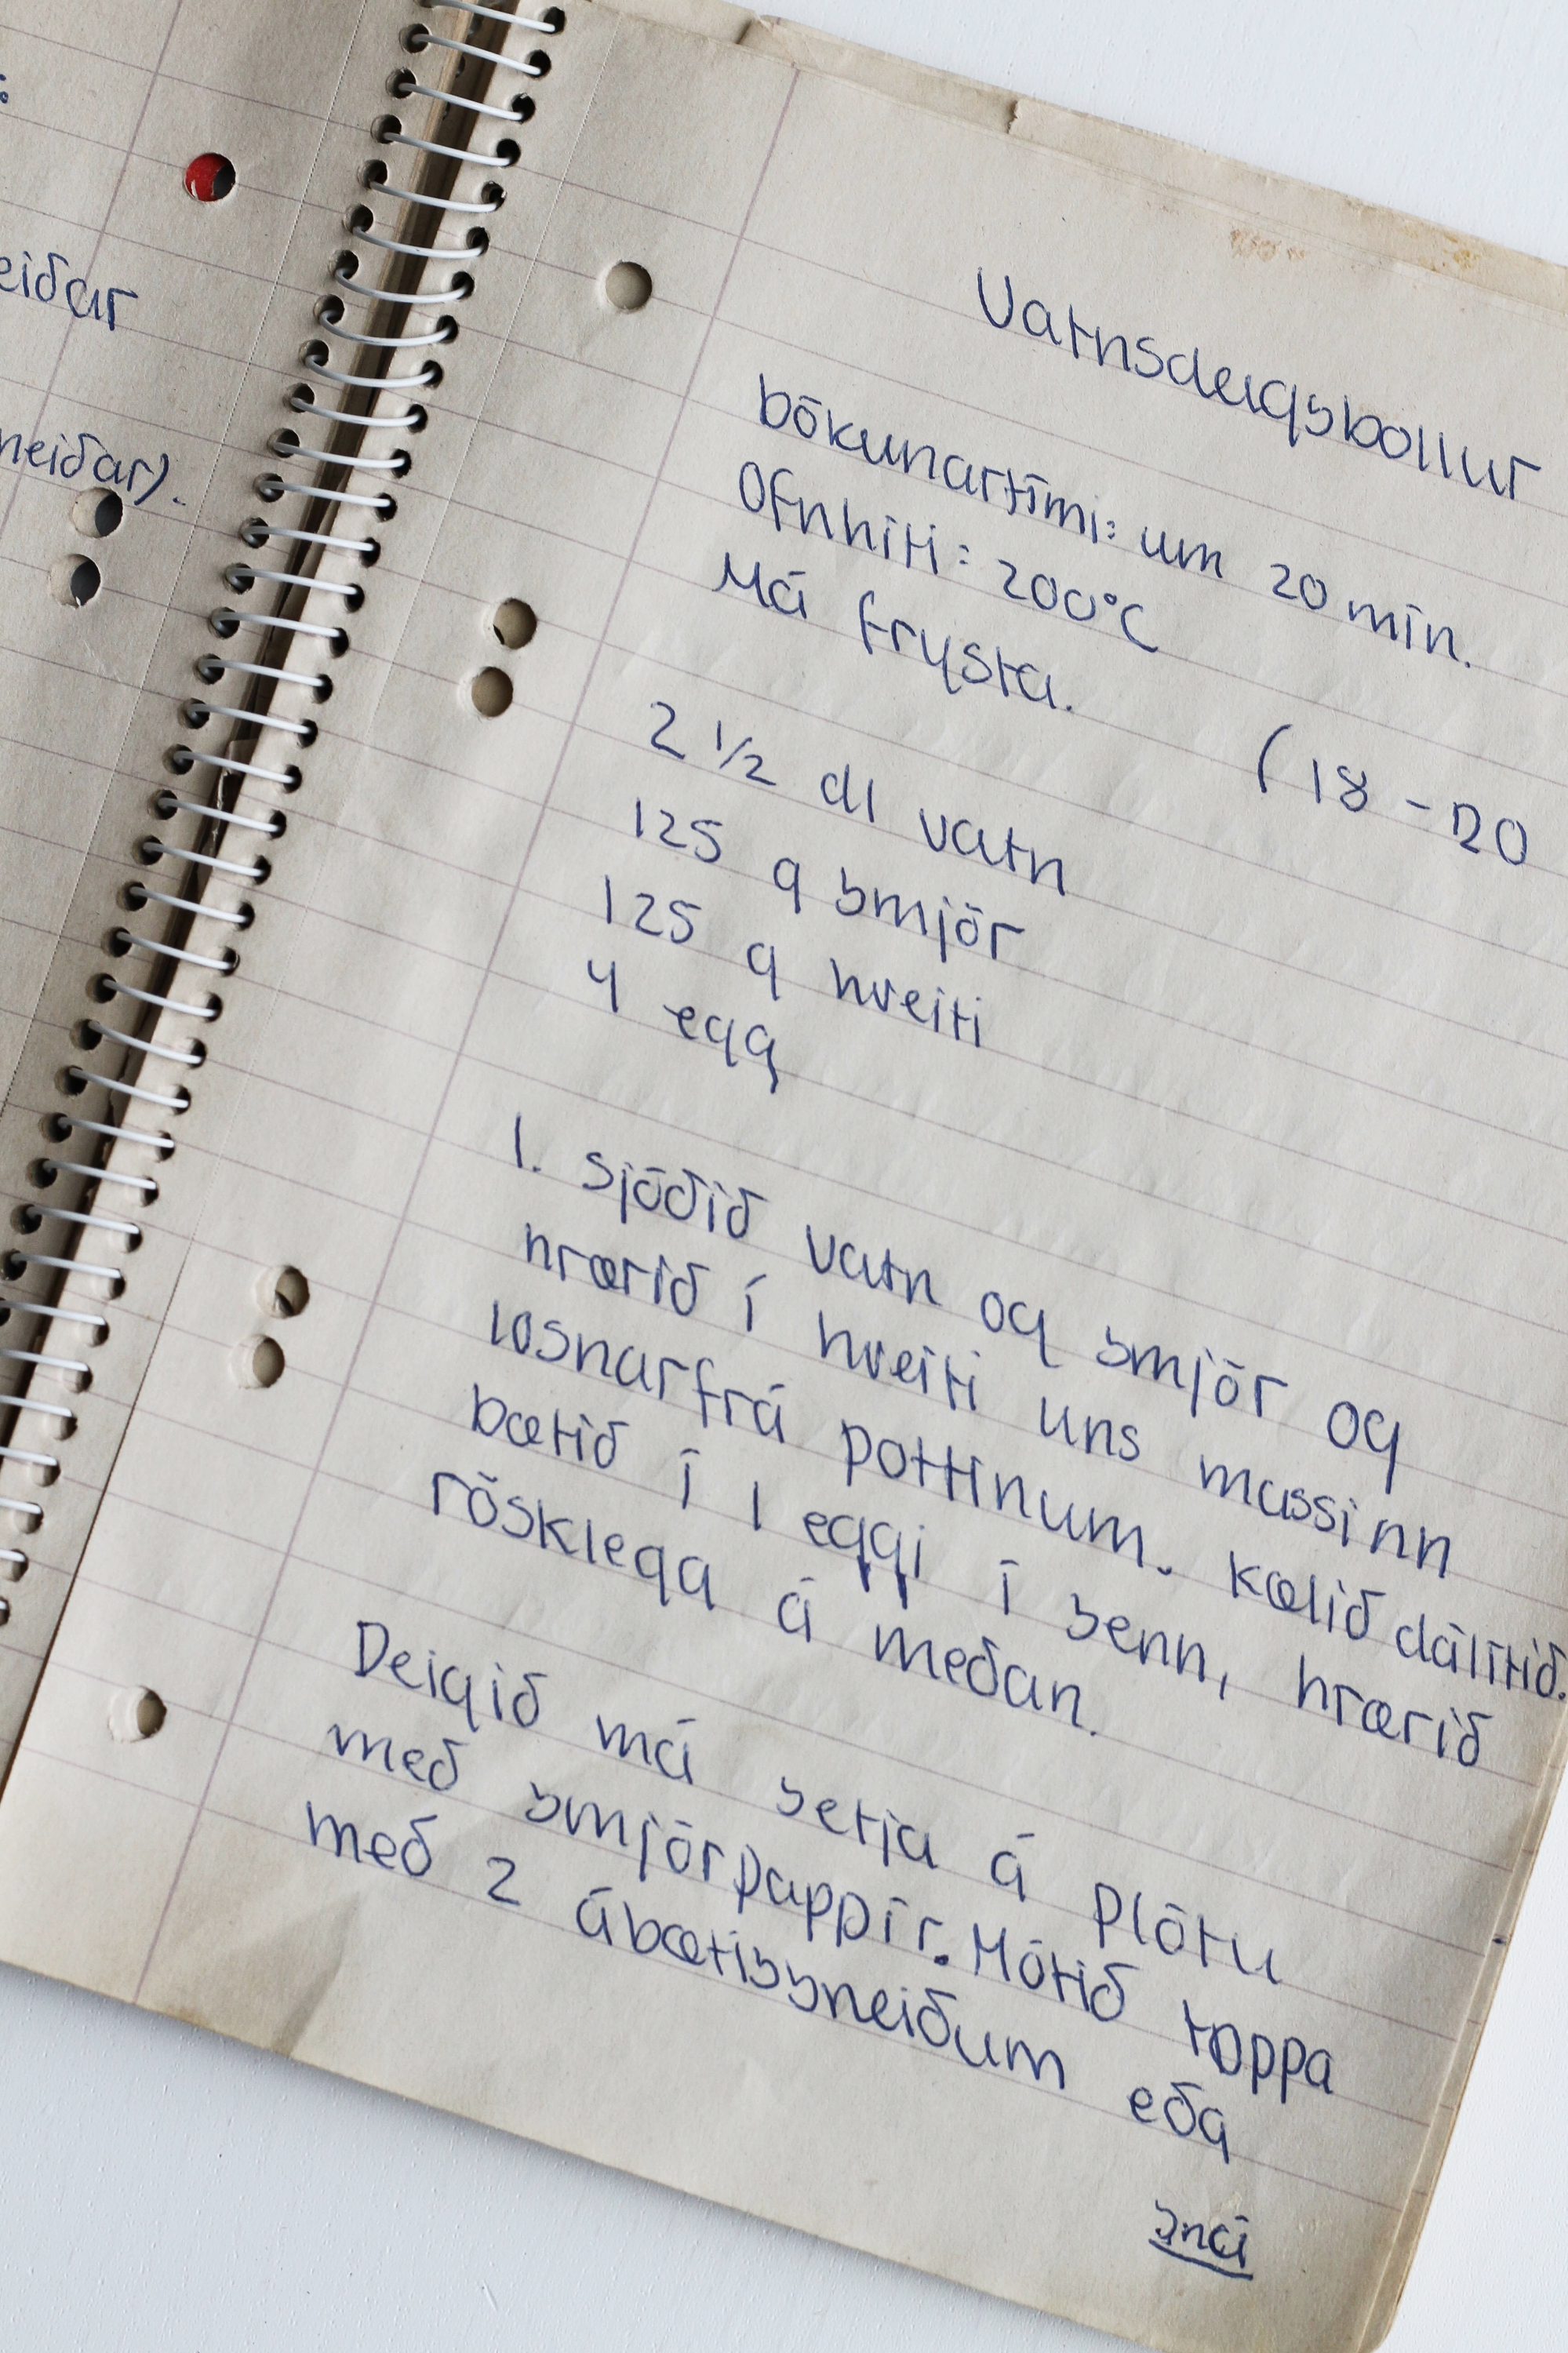 :
eiðar
neiðar).
Vatnsdeigsbollur
bökunartími: um 20 mín.
Ofnhiti: 200°C
Má frysta.
(18 - 20
2 1/2 dl vatn
125 g smjör
125 g hveiti
4 egg
1. sjóðið vatn og smjör og
hrærið í hveiti uns massinn
losnar frá pottinum. kælið dálítið.
bætið í 1 eggi í senn, hrærið
rösklega á meðan.
Deigið má setja á plötu
með smjörpappír. Mótið toppa
með 2 ábætissneiðum eða
snú